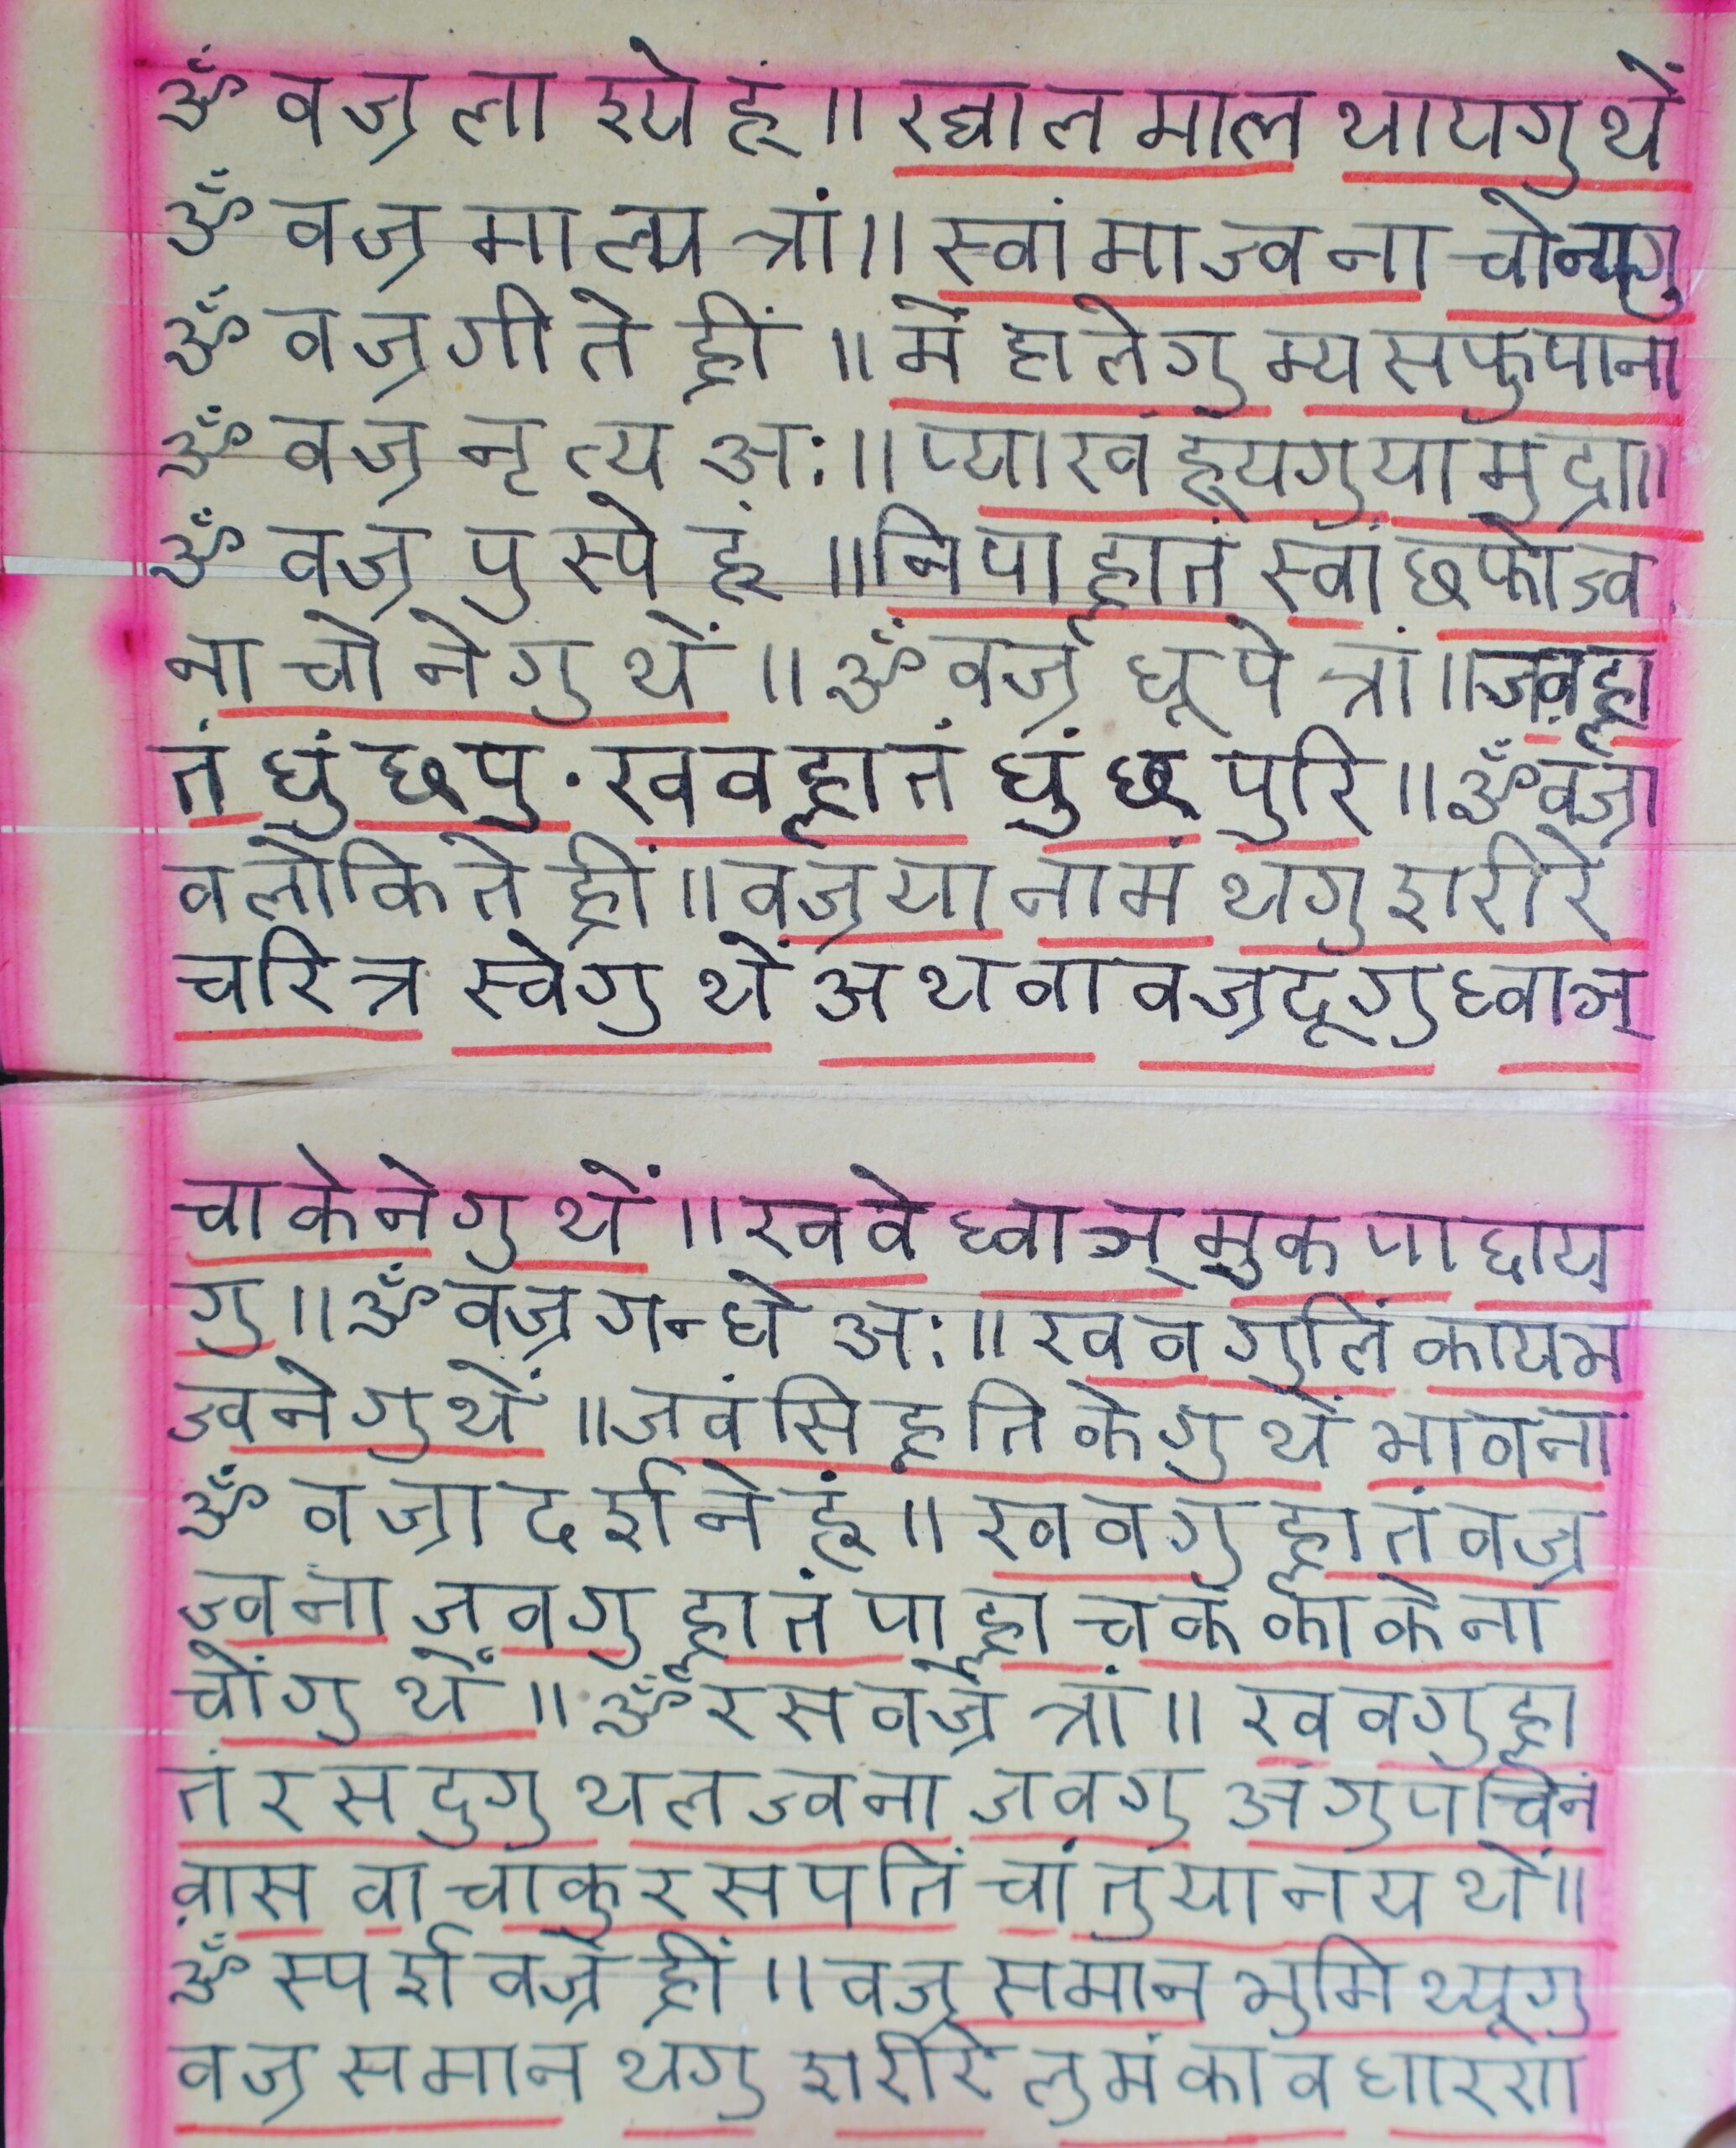 ॐ वज्र लास्ये हूं ॥ ख्वाल माल थायगु थें
ॐ वज्र माल्य त्रां ॥ स्वां मा ज्वना चोन्यगु
ॐ वज्र गीते ह्रीं ॥ में हालेगु म्य सफु पाना
ॐ वज्र नृत्य अः ॥ प्याखं हूयगु या मुद्रा ॥
ॐ वज्र पुस्पे हूं ॥ निपा ह्लातं स्वां छफो ज्व
ना चोनेगु थें ॥ ॐ वज्र धूपे त्रां ॥ जव ह्ला
तं धुं छपु . खव ह्लातं धुं छपुरि ॥ ॐ वज्रा
वलोकिते ह्रीं ॥ वज्रया नामं थगु शरीरे
चरित्र स्वेगु थें अथवा वज्रदूगु ध्वाञ्
चाकेनेगु थें ॥ खवे ध्वाञ् मुक पा छाय्
गु ॥ ॐ वज्र गन्धे अः ॥ खव गुलिं कायभ
ज्वनेगु थें ॥ जवं सिह्ल तिकेगु थें भावना
ॐ वज्रादर्शने हूं ॥ खवगु ह्लातं वज्र
ज्वना जवगु ह्लातं पा ह्ला चकं काकेना
चोंगु थें ॥ ॐ रस वज्रे त्रां ॥ खवगु ह्ला
तं रस दुगु थल ज्वना जवगु अंगुपचिनं
वास वा चाकु रस पतिं चांतुयानय थें ॥
ॐ स्पर्श वज्रे ह्रीं ॥ वज्र समान भुमि थ्यूगु
वज्र समान थगु शरीरे लुमंकाव धारणा